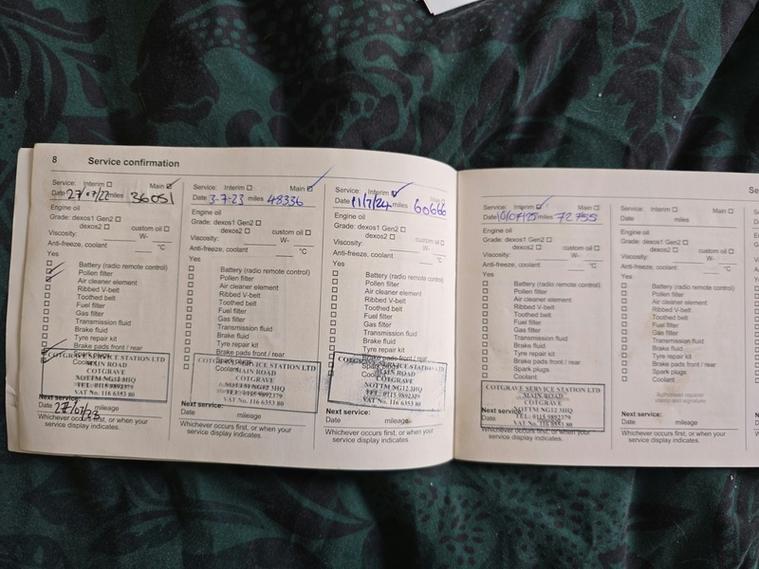 8 Service confirmation
Service: Interim Main
Date 27/07/22 miles 36051
Engine oil
Grade: dexos1 Gen2
dexos2 custom oil
Viscosity: W-
Anti-freeze, coolant °C
Yes
Battery (radio remote control)
Pollen filter
Air cleaner element
Ribbed V-belt
Toothed belt
Fuel filter
Gas filter
Transmission fluid
Brake fluid
Tyre repair kit
Brake pads front / rear
COTGRAVE SERVICE STATION LTD
MAIN ROAD
COTGRAVE
NOTTM NG12 3HQ
TEL: 0115 9892379
VAT No. 116 6353 80
Next service:
Date 27/07/23 mileage
Whichever occurs first, or when your
service display indicates.
Service: Interim Main
Date 3-7-23 miles 48336
Engine oil
Grade: dexos1 Gen2
dexos2 custom oil
Viscosity: W-
Anti-freeze, coolant °C
Yes
Battery (radio remote control)
Pollen filter
Air cleaner element
Ribbed V-belt
Toothed belt
Fuel filter
Gas filter
Transmission fluid
Brake fluid
Tyre repair kit
Brake pads front / rear
COTGRAVE SERVICE STATION LTD
MAIN ROAD
COTGRAVE
NOTTM NG12 3HQ
TEL: 0115 9892379
VAT No. 116 6353 80
Next service:
Date mileage
Whichever occurs first, or when your
service display indicates.
Service: Interim Main
Date 11/7/24 miles 60666
Engine oil
Grade: dexos1 Gen2
dexos2 custom oil
Viscosity: W-
Anti-freeze, coolant °C
Yes
Battery (radio remote control)
Pollen filter
Air cleaner element
Ribbed V-belt
Toothed belt
Fuel filter
Gas filter
Transmission fluid
Brake fluid
Tyre repair kit
Brake pads front / rear
COTGRAVE SERVICE STATION LTD
MAIN ROAD
COTGRAVE
NOTTM NG12 3HQ
TEL: 0115 9892379
VAT No. 116 6353 80
Next service:
Date mileage
Whichever occurs first, or when your
service display indicates.
Service: Interim Main
Date 10/07/25 miles 72755
Engine oil
Grade: dexos1 Gen2
dexos2 custom oil
Viscosity: W-
Anti-freeze, coolant °C
Yes
Battery (radio remote control)
Pollen filter
Air cleaner element
Ribbed V-belt
Toothed belt
Fuel filter
Gas filter
Transmission fluid
Brake fluid
Tyre repair kit
Brake pads front / rear
Spark plugs
Coolant
COTGRAVE SERVICE STATION LTD
MAIN ROAD
COTGRAVE
NOTTM NG12 3HQ
TEL: 0115 9892379
VAT No. 116 6353 80
Next service:
Date mileage
Whichever occurs first, or when your
service display indicates.
Service: Interim Main
Date miles
Engine oil
Grade: dexos1 Gen2
dexos2 custom oil
Viscosity: W-
Anti-freeze, coolant °C
Yes
Battery (radio remote control)
Pollen filter
Air cleaner element
Ribbed V-belt
Toothed belt
Fuel filter
Gas filter
Transmission fluid
Brake fluid
Tyre repair kit
Brake pads front / rear
Spark plugs
Coolant
Authorised repairer
stamp and signature
Next service:
Date mileage
Whichever occurs first, or when your
service display indicates.